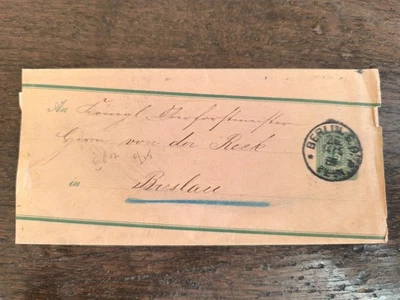 An Königl. Oberforstmeister
Herrn von der Reck
in Breslau
BERLIN